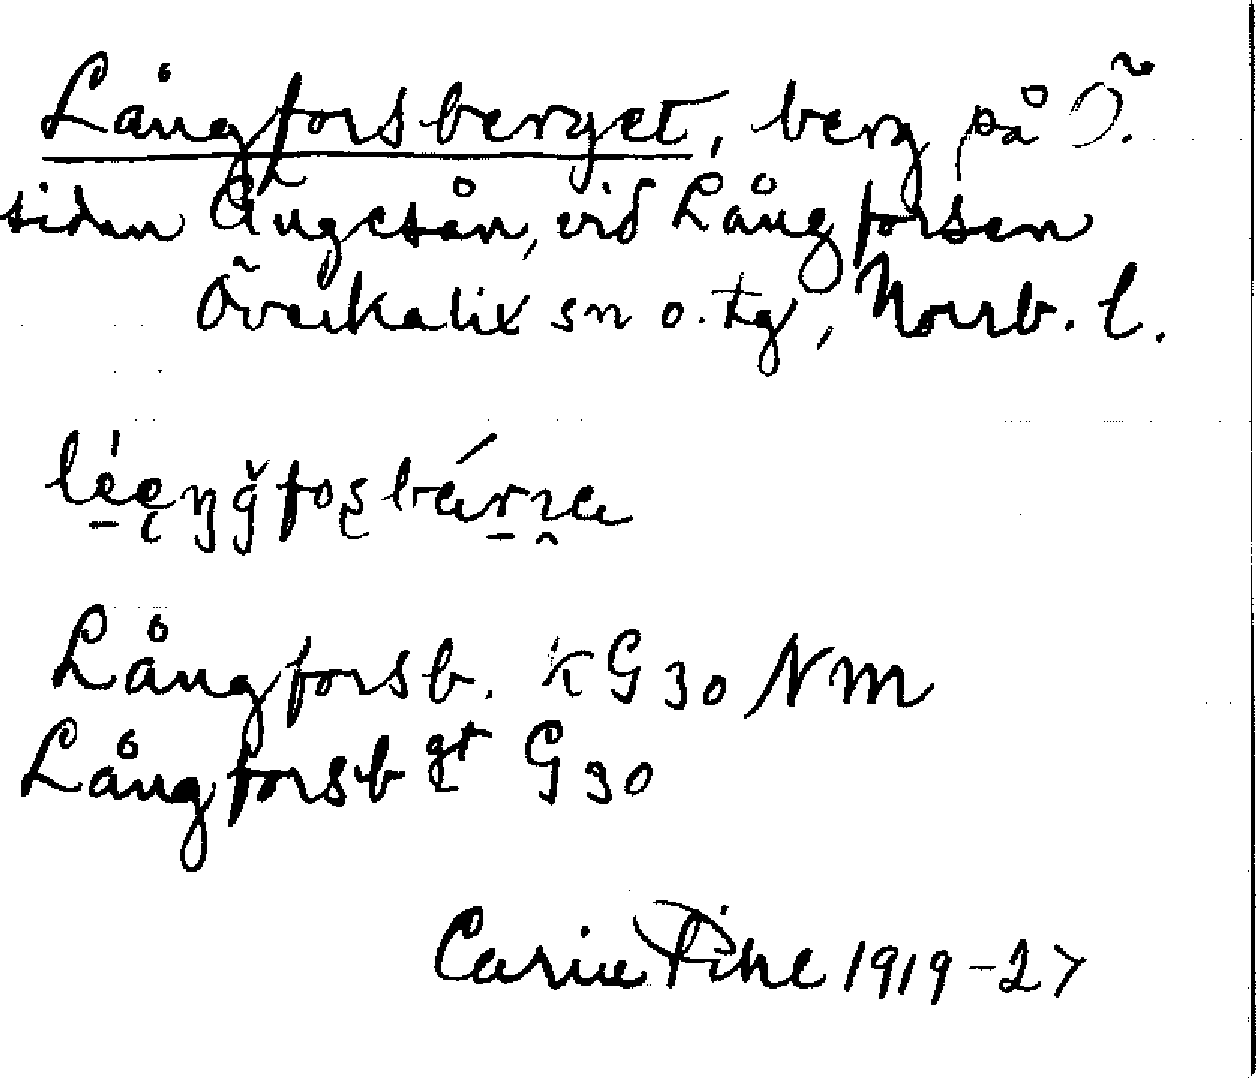 Långforsberget, berg på Ö.
sidan Ängesån, vid Långforsen
Överkalix sn o. tg, Norrb. l.
Långforsb. kG 30 NM
Långforsbgt G 30
Carin Pihl 1919-27